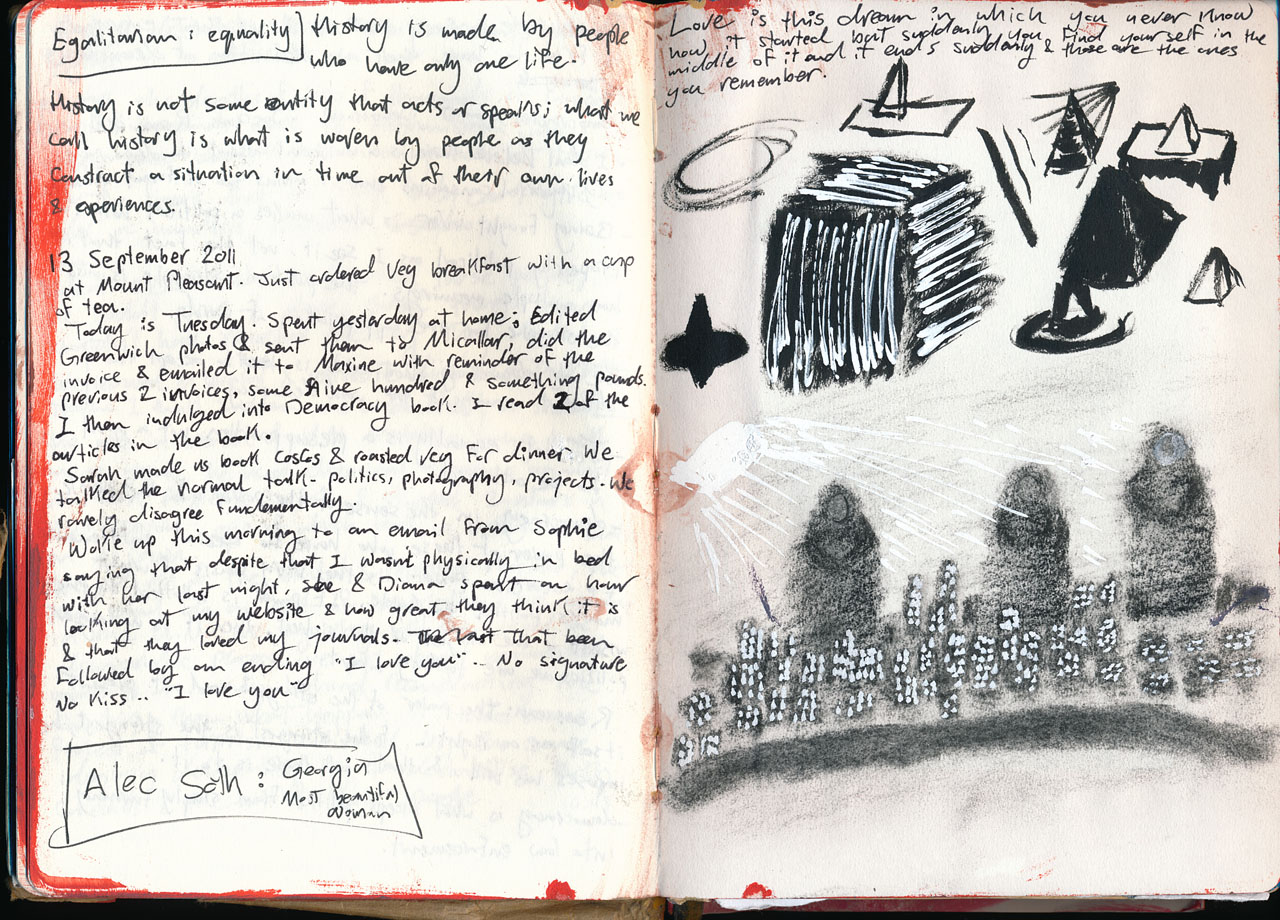 Egalitarian : equality
History is made by people
who have only one life.
History is not some entity that acts or speaks; what we
call history is what is woven by people as they
construct a situation in time out of their own lives
& experiences.
13 September 2011
at Mount Pleasant. Just ordered veg breakfast with a cup
of tea.
Today is Tuesday. Spent yesterday at home; Edited
Greenwich photos & sent them to Micallar, did the
invoice & emailed it to Maxine with reminder of the
previous 2 invoices, some five hundred & something pounds.
I then indulged into Democracy book. I read 2 of the
articles in the book.
Sarah made us book coscos & roasted veg for dinner. We
talked the normal talk - politics, photography, projects. We
rarely disagree fundamentally.
Woke up this morning to an email from Sophie
saying that despite that I wasn't physically in bed
with her last night, she & Diana spent an hour
looking at my website & how great they think it is
& that they loved my journals. that been
Followed by an ending "I love you".. No signature
No Kiss.. "I love you"
Alec Soth : Georgia
Most beautiful
woman
Love is this dream in which you never know
how it started but suddenly you find yourself in the
middle of it and it ends suddenly & those are the ones
you remember.